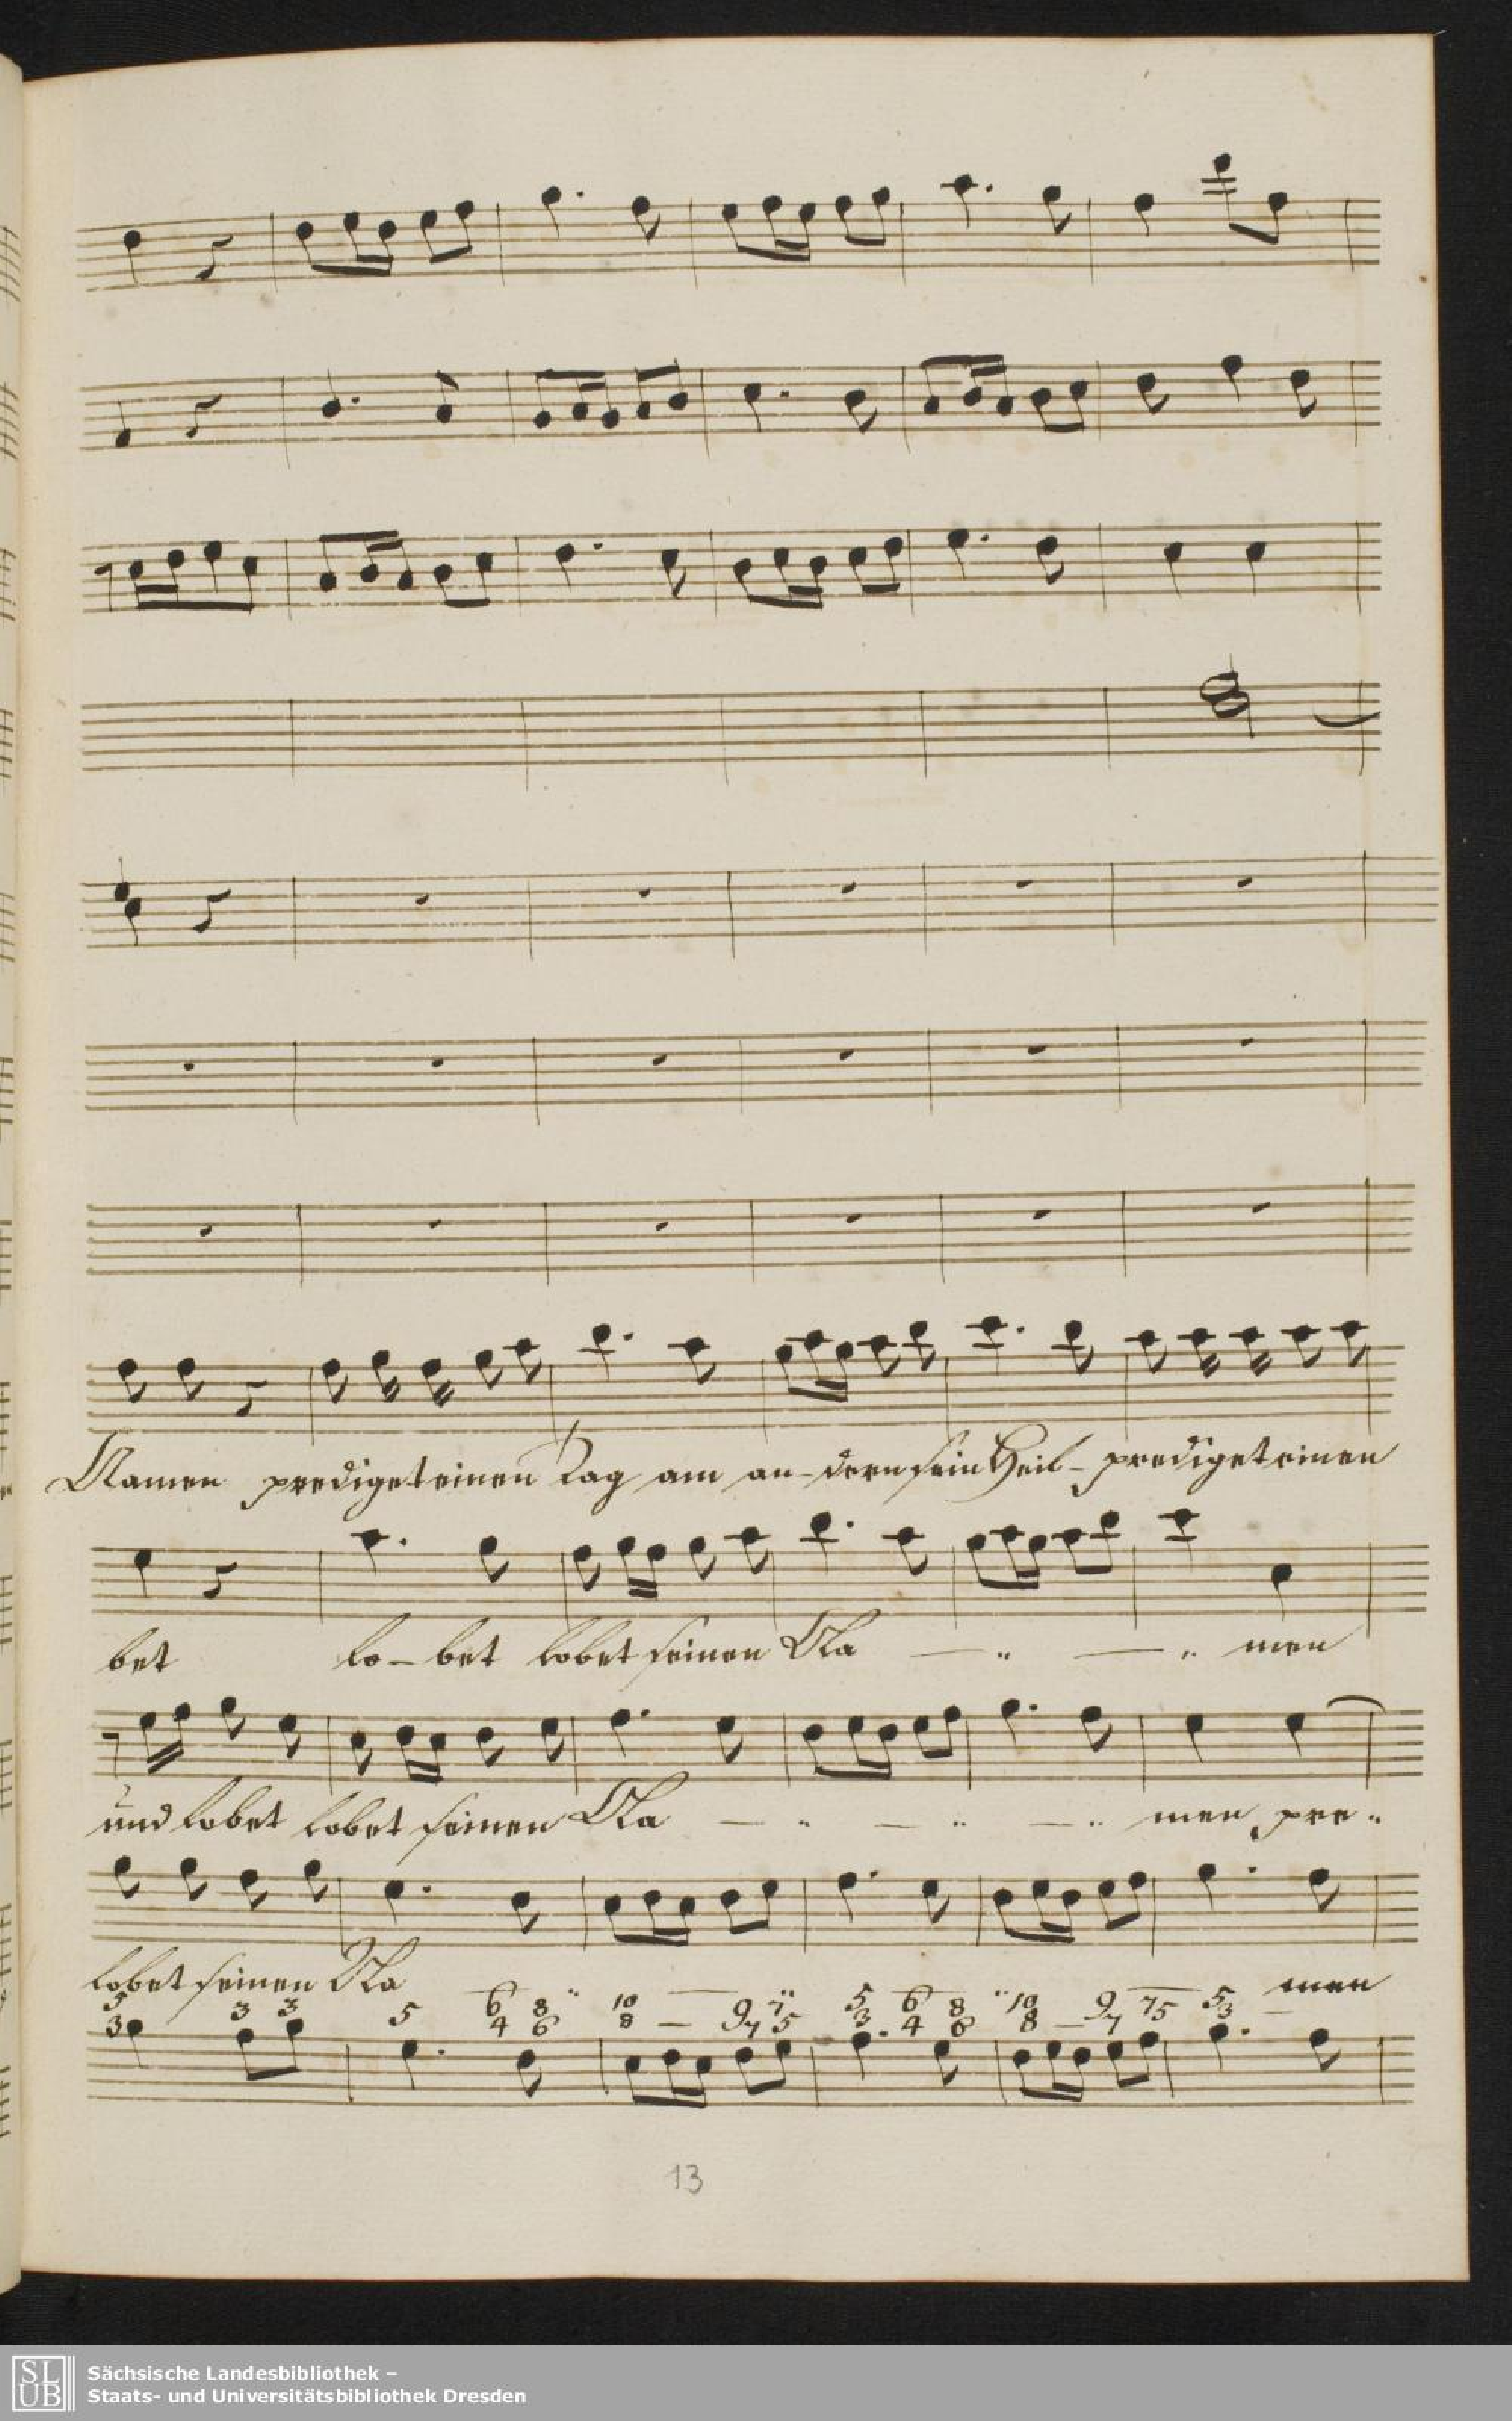 Namen prediget einen Tag am an-dern sein Heil- prediget einen
bet lo-bet lobet seinen Na — „ — „ men
und lobet lobet seinen Na — „ — „ — „ men pre„
lobet seinen Na — „ — „ — „ — men
5 3 3 5 6 8 10 9 7 5 6 8 10 9 7 5 5
3 4 6 8 — 7 5 3 4 6 8 — 7 3
13
SLUB
Sächsische Landesbibliothek –
Staats- und Universitätsbibliothek Dresden